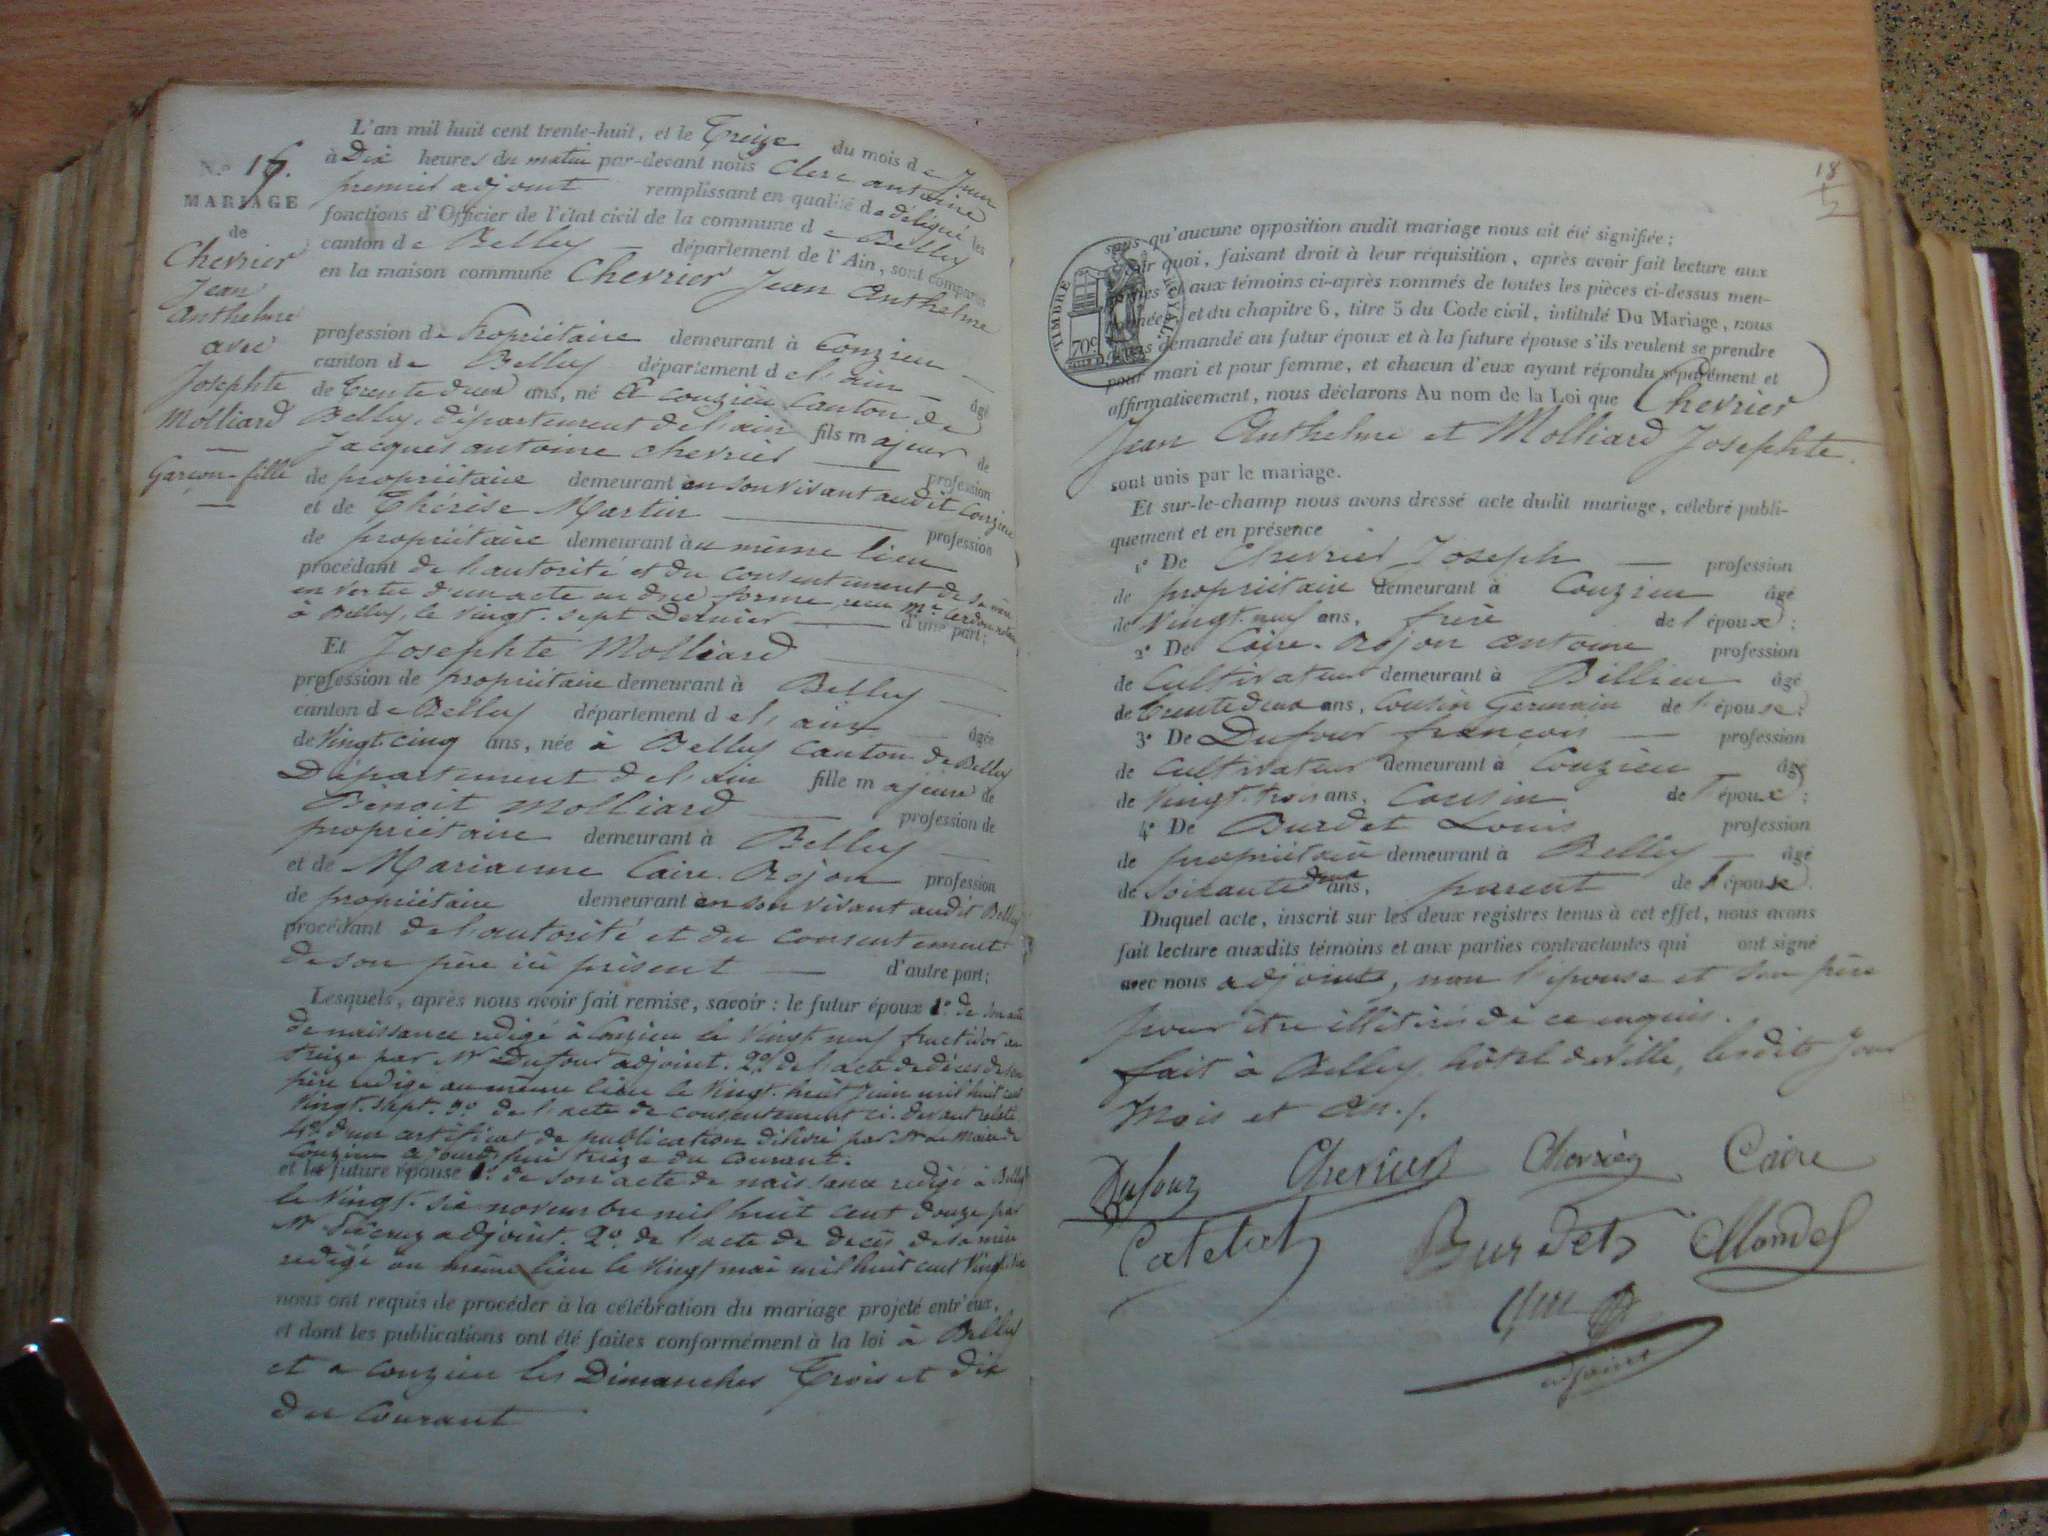 N.° 16.
MARIAGE
de
Chevrier
Jean
Anthelme
avec
Josephte
Molliard
Garçon-fille
L'an mil huit cent trente-huit, et le Treize du mois de Juin
à Dix heures du matin par-devant nous Clerc antoine
premier adjoint remplissant en qualité de délégué les
fonctions d'Officier de l'état civil de la commune de Belley
canton de Belley département de l'Ain, sont comparus
en la maison commune Chevrier Jean Anthelme
profession de Propriétaire demeurant à Conzieu
canton de Belley département de l'ain âgé
de Trente deux ans, né à Conzieu Canton de
Belley, département de l'ain fils majeur de
Jacques antoine chevrier profession
de propriétaire demeurant en son vivant audit Conzieu
et de Thérèse Martin profession
de propriétaire demeurant au même lieu
procédant de l'autorité et du consentement de sa mère
en vertu d'un acte en due forme, reçu Me notaire
à Belley, le vingt-sept Dernier d'une part;
Et Josephte Molliard
profession de propriétaire demeurant à Belley
canton de Belley département de l'ain âgée
de Vingt-cinq ans, née à Belley Canton de Belley
Département de l'ain fille majeure de
Benoit Molliard profession de
propriétaire demeurant à Belley
et de Marianne Caire-Rojon profession
de propriétaire demeurant en son vivant audit Belley
procédant de l'autorité et du consentement
de son père ici présent d'autre part;
Lesquels, après nous avoir fait remise, savoir : le futur époux 1.° de son acte
de naissance rédigé à Conzieu le Vingt neuf fructidor an
treize par Mr Dufour adjoint. 2.° de l'acte de décès de son
père rédigé au même lieu le Vingt-huit Juin mil huit cent
Vingt-sept. 3.° de l'acte de consentement ci-devant relaté
4.° d'un certificat de publication délivré par Mr le Maire de
Conzieu aujourd'hui treize du courant.
et la future épouse 1.° de son acte de naissance rédigé à Belley
le Vingt-six novembre mil huit cent douze par
Mr adjoint. 2.° de l'acte de décès de sa mère
rédigé au même lieu le Vingt mai mil huit cent Vingt
nous ont requis de procéder à la célébration du mariage projeté entr'eux,
et dont les publications ont été faites conformément à la loi à Belley
et a Conzieu les Dimanches Trois et dix
du Courant
18
1/2
TIMBRE ROYAL
70c
sans qu'aucune opposition audit mariage nous ait été signifiée;
quoi, faisant droit à leur réquisition, après avoir fait lecture aux
et aux témoins ci-après nommés de toutes les pièces ci-dessus men-
et du chapitre 6, titre 5 du Code civil, intitulé Du Mariage, nous
demandé au futur époux et à la future épouse s'ils veulent se prendre
pour mari et pour femme, et chacun d'eux ayant répondu séparément et
affirmativement, nous déclarons Au nom de la Loi que Chevrier
Jean Anthelme et Molliard Josephte.
sont unis par le mariage.
Et sur-le-champ nous avons dressé acte dudit mariage, célébré publi-
quement et en présence
1° De Chevrier Joseph profession
de propriétaire demeurant à Conzieu âgé
de Vingt-neuf ans, frère de l'époux;
2° De Caire-Rojon antoine profession
de Cultivateur demeurant à Billieu âgé
de Trente deux ans, Cousin Germain de l'épouse;
3° De Dufour françois profession
de Cultivateur demeurant à Conzieu âgé
de Vingt-trois ans, Cousin de l'époux;
4° De Burdet Louis profession
de propriétaire demeurant à Belley âgé
de Soixante deux ans, parent de l'épouse.
Duquel acte, inscrit sur les deux registres tenus à cet effet, nous avons
fait lecture auxdits témoins et aux parties contractantes qui ont signé
avec nous adjoint, non l'épouse et son père
pour être illitérés de ce enquis.
fait à Belley, hôtel de ville, lesdits Jour
Mois et an./.
Dufour Chevrier Chevrier Caire
Catelat Burdet
adjoint